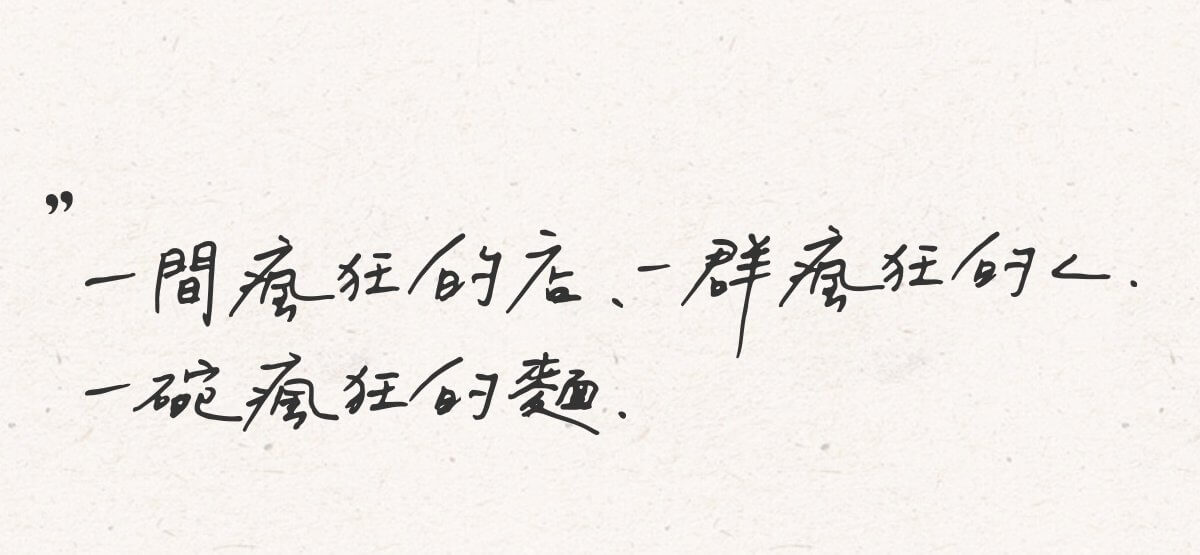 ”
一間瘋狂的店、一群瘋狂的人.
一碗瘋狂的麵.